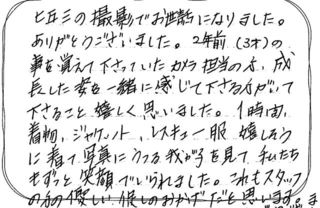 七五三の撮影でお世話になりました。
ありがとうございました。2年前(3才)の
事を覚えて下さっていたカメラ担当の方、成
長した姿を一緒に感じて下さる方がいて
下さること嬉しく思いました。1時間、
着物、ジャケット、レスキュー服 嬉しそう
に着て写真にうつる我が子を見て私たち
もずっと笑顔でいられました。これもスタッフ
の方の優しい促しのおかげだと思います。